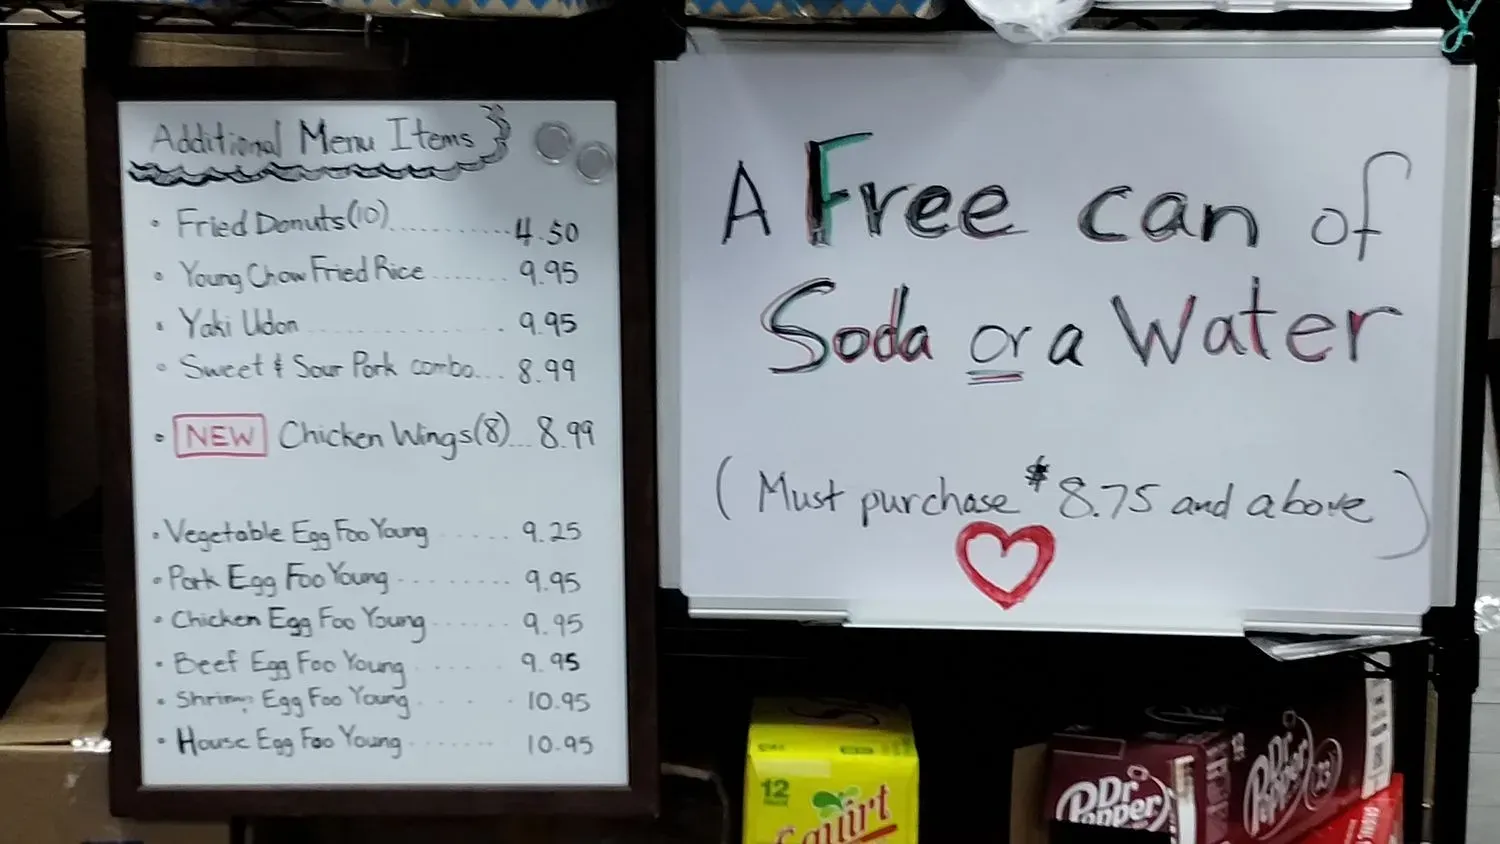 Additional Menu Items
• Fried Donuts(10)..........4.50
• Young Chow Fried Rice.......9.95
• Yaki Udon..............9.95
• Sweet & Sour Pork combo...8.99
• NEW Chicken Wings(8)...8.99
• Vegetable Egg Foo Young.....9.25
• Pork Egg Foo Young........9.95
• Chicken Egg Foo Young.....9.95
• Beef Egg Foo Young......9.95
• Shrimp Egg Foo Young....10.95
• House Egg Foo Young.......10.95
A Free can of
Soda or a Water
(Must purchase $8.75 and above)
12
Squirt
Dr Pepper
Dr Pepper
23